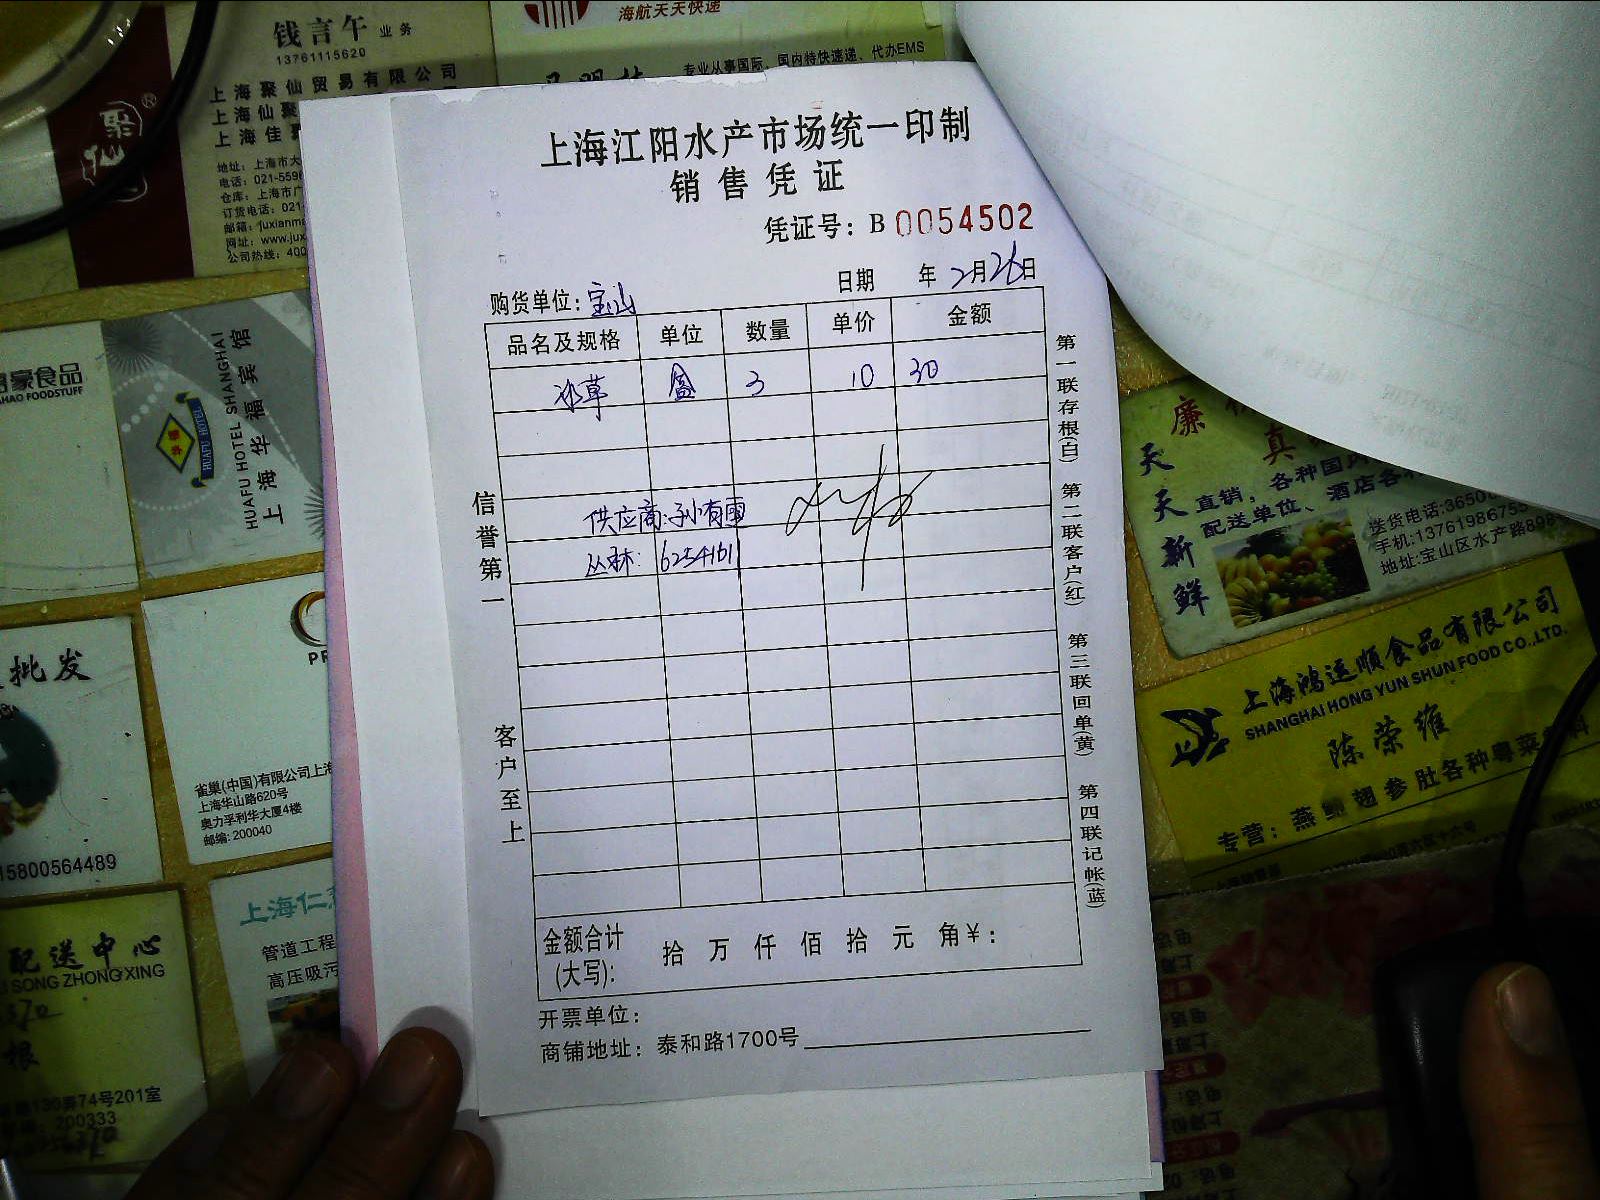 上海江阳水产市场统一印制
销售凭证
凭证号：B 0054502
日期 年 2月26日
购货单位：宝山
品名及规格 单位 数量 单价 金额
冰草 盒 3 10 30
供应商：孙有雷
6254161
信誉第一 客户至上
第一联存根(白) 第二联客户(红) 第三联回单(黄) 第四联记帐(蓝)
金额合计(大写)： 拾 万 仟 佰 拾 元 角 ¥：
开票单位：
商铺地址：泰和路1700号
钱言午 业务
13761115620
上海聚仙贸易有限公司
上海仙聚
上海佳
地址：上海市大
电话：021-559
仓库：上海市广
订货电话：021-
邮箱：juxianma
网址：www.jux
公司热线：400
聚仙®
海航天天快递
专业从事国际、国内特快速递、代办EMS
豪食品
AHAO FOODSTUFF
HUAFU HOTEL SHANGHAI
上海华福宾馆
HUAFU HOTEL
批发
15800564489
雀巢(中国)有限公司上海
上海华山路620号
奥力孚利华大厦4楼
邮编：200040
配送中心
SONG ZHONG XING
根
130弄74号201室
200333
上海仁
管道工程
高压吸污
天天新鲜
直销，各种国
配送单位、酒店各
送货电话:3650
手机:1376198675
地址:宝山区水产路898
上海鸿运顺食品有限公司
SHANGHAI HONG YUN SHUN FOOD CO.,LTD.
陈荣维
专营：燕鲍翅参肚各种粤菜